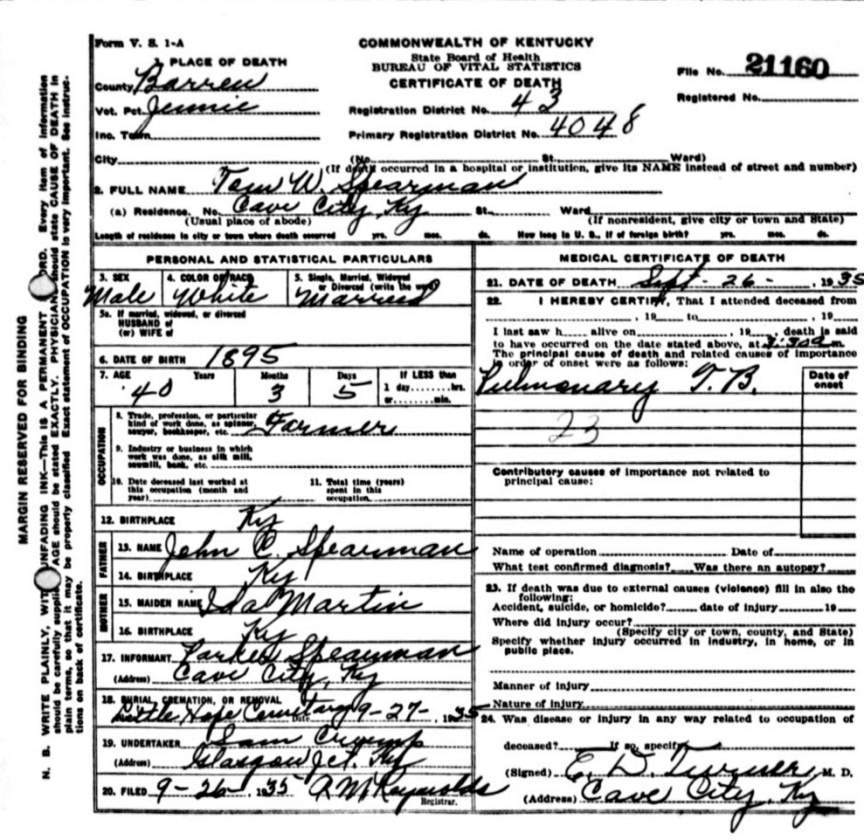 Form V. S. 1-A
COMMONWEALTH OF KENTUCKY
State Board of Health
BUREAU OF VITAL STATISTICS
CERTIFICATE OF DEATH
File No. 21160
Registered No.
PLACE OF DEATH
County Barren
Vot. Pct. Jennie
Inc. Town
City
Registration District No. 43
Primary Registration District No. 4048
(No. St. Ward)
(If death occurred in a hospital or institution, give its NAME instead of street and number)
2. FULL NAME Tom W. Spearman
(a) Residence. No. Cave City, Ky St. Ward
(Usual place of abode) (If nonresident, give city or town and State)
Length of residence in city or town where death occurred yrs. mos. ds. How long in U. S., if of foreign birth? yrs. mos. ds.
PERSONAL AND STATISTICAL PARTICULARS
3. SEX Male
4. COLOR OR RACE White
5. Single, Married, Widowed
or Divorced (write the word)
Married
5a. If married, widowed, or divorced
HUSBAND of
(or) WIFE of
6. DATE OF BIRTH 1895
7. AGE Years Months Days If LESS than
40 3 5 1 day hrs.
or min.
OCCUPATION
8. Trade, profession, or particular
kind of work done, as spinner,
sawyer, bookkeeper, etc. Farmer
9. Industry or business in which
work was done, as silk mill,
sawmill, bank, etc.
10. Date deceased last worked at
this occupation (month and
year)
11. Total time (years)
spent in this
occupation
12. BIRTHPLACE Ky
FATHER
13. NAME John C. Spearman
14. BIRTHPLACE Ky
MOTHER
15. MAIDEN NAME Ida Martin
16. BIRTHPLACE Ky
17. INFORMANT Spearman
(Address) Cave City, Ky
18. BURIAL, CREMATION, OR REMOVAL
Little Hope Cemetary Date 9-27-, 1935
19. UNDERTAKER Sam Crump
(Address) Glasgow Jct. Ky
20. FILED 9-26-, 1935 Reynolds
Registrar.
MEDICAL CERTIFICATE OF DEATH
21. DATE OF DEATH Sept - 26 -, 1935
22. I HEREBY CERTIFY, That I attended deceased from
, 19 to , 19
I last saw h alive on , 19 , death is said
to have occurred on the date stated above, at m.
The principal cause of death and related causes of importance
in order of onset were as follows:
Date of
onset
Pulmonary T. B.
23
Contributory causes of importance not related to
principal cause:
Name of operation Date of
What test confirmed diagnosis? Was there an autopsy?
23. If death was due to external causes (violence) fill in also the
following:
Accident, suicide, or homicide? date of injury 19
Where did injury occur?
(Specify city or town, county, and State)
Specify whether injury occurred in industry, in home, or in
public place.
Manner of injury
Nature of injury
24. Was disease or injury in any way related to occupation of
deceased? If so, specify
(Signed) E. D. Turner, M. D.
(Address) Cave City, Ky
MARGIN RESERVED FOR BINDING
N. B. WRITE PLAINLY, WITH UNFADING INK—This is A PERMANENT RECORD. Every item of information
should be carefully supplied. AGE should be stated EXACTLY. PHYSICIANS should state CAUSE OF DEATH in
plain terms, so that it may be properly classified. Exact statement of OCCUPATION is very important. See instruc-
tions on back of certificate.